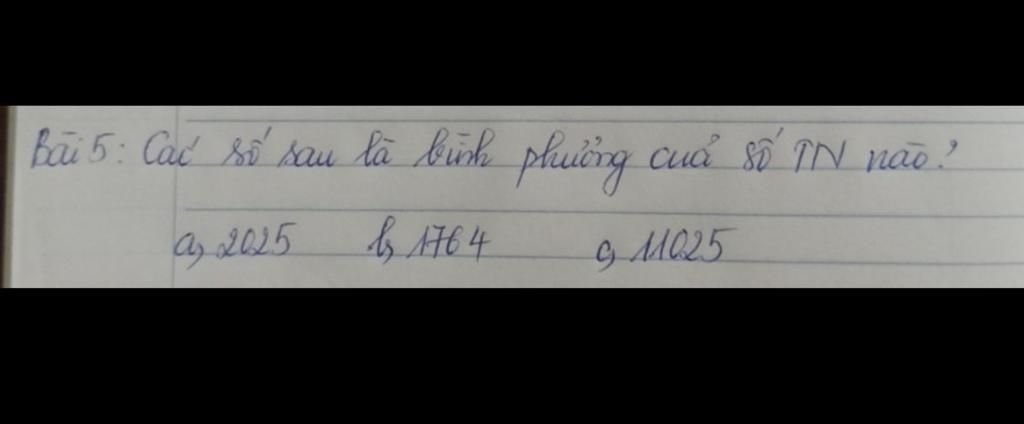 Bài 5: Các số sau là bình phương của số TN nào?
a, 2025 b, 1764 c, 11025